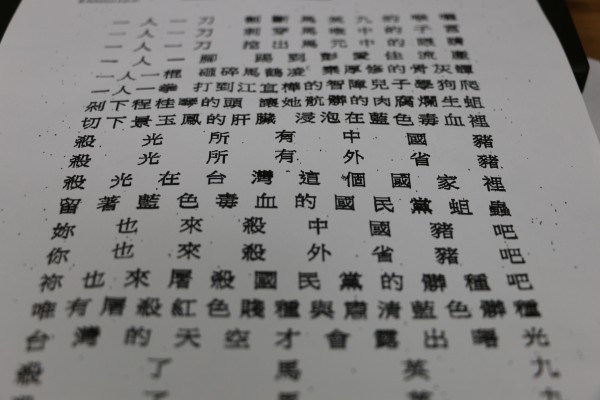 一人一刀 斬斷馬英九的喉嚨
一人一刀 刺穿馬唯中的子宮
一人一刀 挖出馬元中的眼睛
一人一腳 踢到彭愛佳流產
一人一棍 砸碎馬鶴凌 秦厚修的骨灰罈
一人一拳 打到江宜樺的智障兒子學狗爬
剁下程桂琴的頭 讓她骯髒的肉腐爛生蛆
切下景玉鳳的肝臟 浸泡在藍色毒血裡
殺光所有中國豬
殺光所有外省豬
殺光在台灣這個國家裡
留著藍色毒血的國民黨蛆蟲
妳也來殺中國豬吧
你也來殺外省豬吧
祢也來屠殺國民黨的髒種吧
唯有屠殺紅色賤種與肅清藍色髒種
台灣的天空才會露出曙光
殺了馬英九